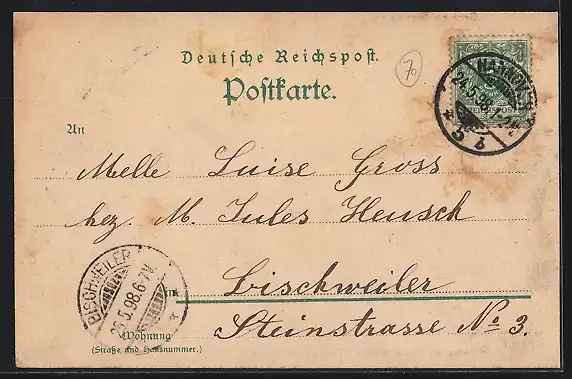 Deutsche Reichspost.
Postkarte.
70
HANNOVER
24.5.98.1-2N
* 5 b
An
Melle Luise Gross
chez. M. Jules Heusch
BISCHWEILER
25.5.98.6-7V.
in Bischweiler
Steinstrasse No 3.
Wohnung
(Straße und Hausnummer.)